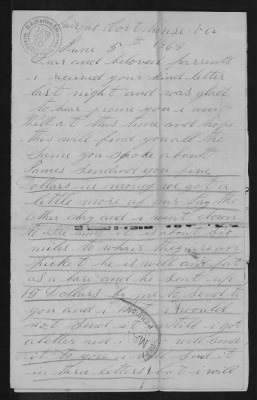 Fairfax Court house Va
June 5th 1863
Dear and beloved parrents
i received your kind letter
last night and was glad
to hear frome you i am
well at this time and hope
this will find you all the
same you spoke about
James sending you five
Dollars in money we got a
little more of our pay the
other day and i went down
to see about six
miles to whare they are on
picket he is well and fat
as a bare and he sent up
15 Dollars to me to send to
you and i i would
not send it untill i got
a letter and i will send
it to you i will send it
in three letters but i will